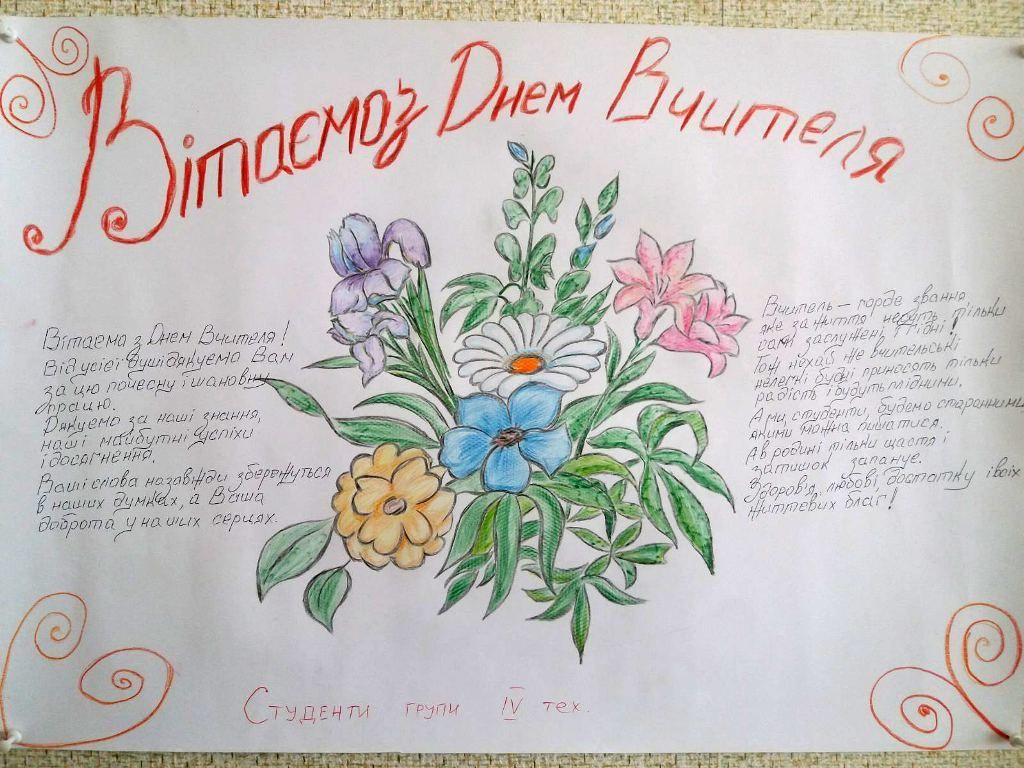 Вітаємо з Днем Вчителя
Вітаємо з Днем Вчителя!
Від усієї душі дякуємо Вам
за цю почесну і шановну
працю.
Дякуємо за наші знання,
наші майбутні успіхи
і досягнення.
Ваші слова назавжди збережуться
в наших думках, а Ваша
доброта у наших серцях.
Вчитель — горде звання
яке за життя несуть тільки
заслужені і гідні!
Тож нехай же вчительські
нелегкі будні приносять тільки
радість і будуть плідними.
А ми, студенти, будемо старанними
якими можна пишатися.
А в родині тільки щастя і
затишок запанує.
Здоров'я, любові, достатку і всіх
життєвих благ!
Студенти групи IV тех.